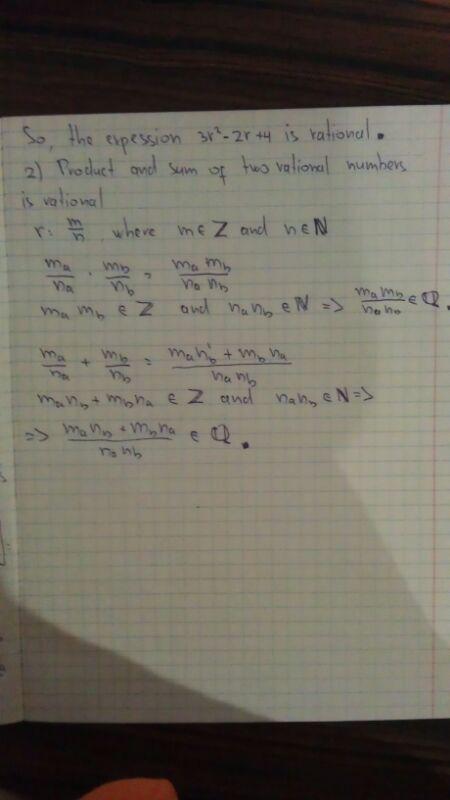 So, the expession 3r² - 2r + 4 is rational.
2) Product and sum of two rational numbers
is rational
r = m/n, where m ∈ ℤ and n ∈ ℕ
m_a/n_a · m_b/n_b = m_a m_b/n_a n_b
m_a m_b ∈ ℤ and n_a n_b ∈ ℕ => m_a m_b/n_a n_b ∈ ℚ.
m_a/n_a + m_b/n_b = m_a n_b + m_b n_a/n_a n_b
m_a n_b + m_b n_a ∈ ℤ and n_a n_b ∈ ℕ =>
=> m_a n_b + m_b n_a/n_a n_b ∈ ℚ.